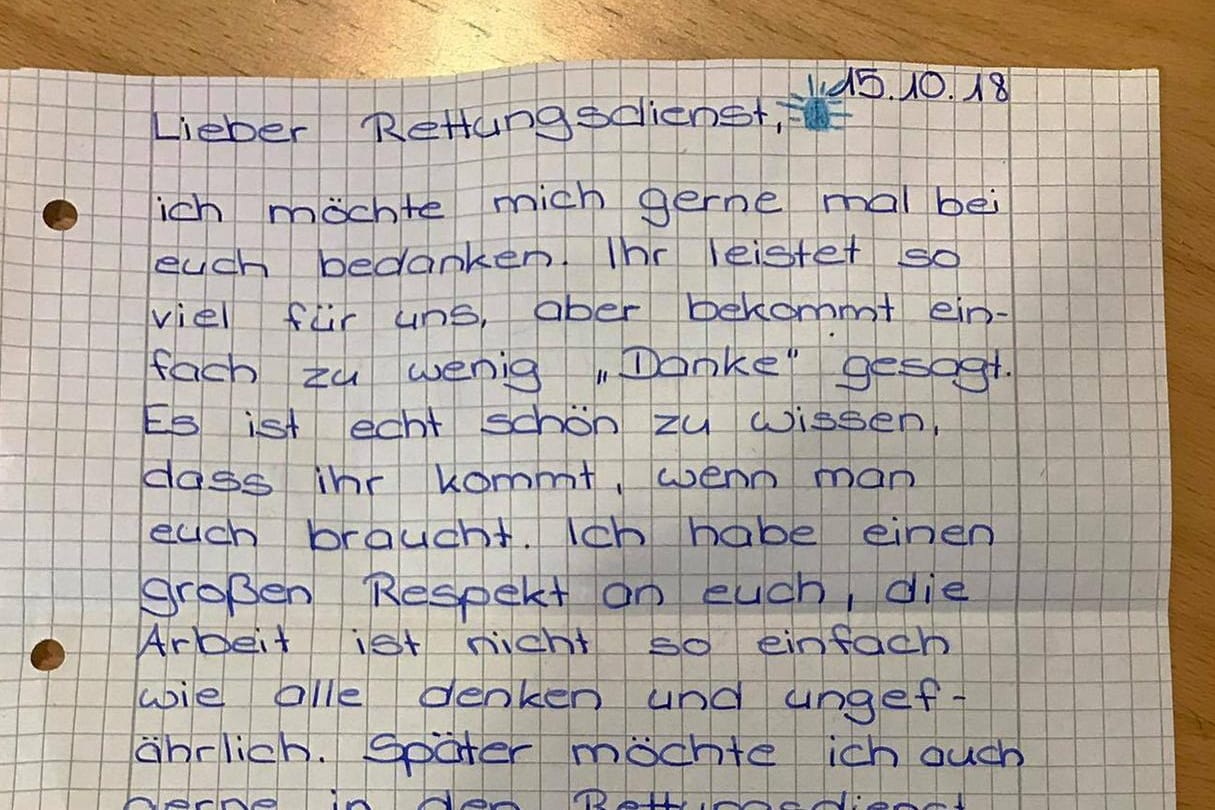 15.10.18
Lieber Rettungsdienst,
ich möchte mich gerne mal bei
euch bedanken. Ihr leistet so
viel für uns, aber bekommt ein-
fach zu wenig „Danke" gesagt.
Es ist echt schön zu wissen,
dass ihr kommt, wenn man
euch braucht. Ich habe einen
großen Respekt an euch, die
Arbeit ist nicht so einfach
wie alle denken und ungef-
ährlich. Später möchte ich auch
gerne in den Rettungsdienst